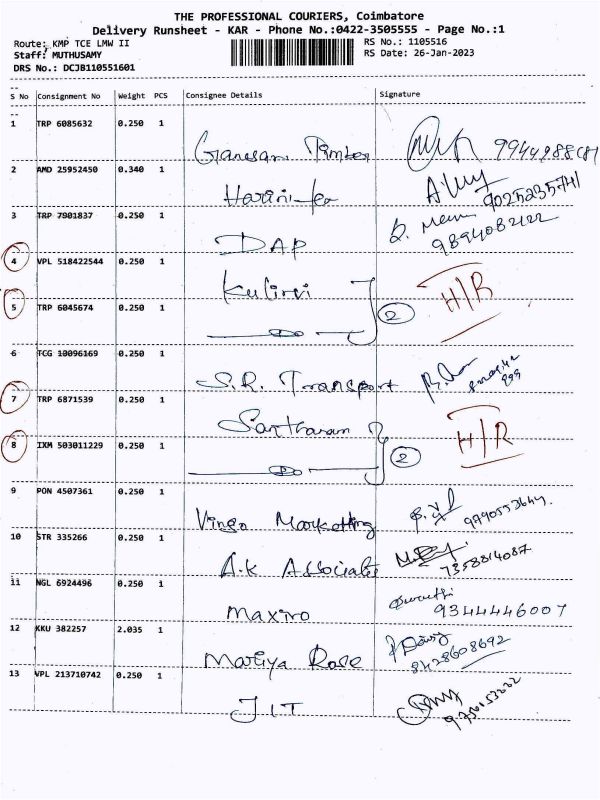 THE PROFESSIONAL COURIERS, Coimbatore
Delivery Runsheet - KAR - Phone No.:0422-3505555 - Page No.:1
Route: KMP TCE LMW II RS No.: 1105516
Staff: MUTHUSAMY RS Date: 26-Jan-2023
DRS No.: DCJB110551601
S No Consignment No Weight PCS Consignee Details Signature
1 TRP 6085632 0.250 1
Ganesan Timber
2 AMD 25952450 0.340 1
Harini 9025235741
3 TRP 7901837 0.250 1
DAP 9894082122
4 VPL 518422544 0.250 1
Kulirvi H/R
5 TRP 6045674 0.250 1
Do 2
6 TCG 10096169 0.250 1
S.R. Transport
7 TRP 6871539 0.250 1
Santharam H/R
8 IXM 503011229 0.250 1
Do 2
9 PON 4507361 0.250 1
Vingo Marketting
10 STR 335266 0.250 1
A.K Associats 7358814087
11 NGL 6924496 0.250 1
Maxiro 9344446007
12 KKU 382257 2.035 1
Mariya Rose 8428608692
13 VPL 213710742 0.250 1
JIT